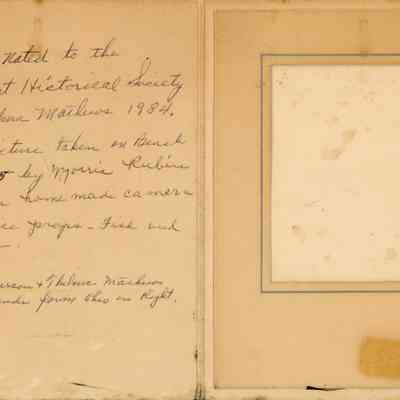 nated to the
t Historical Society
Mathews 1984.
cture taken on Beach
by Morris Rubin
home made camera
props - Fish and
& Thelma Mathews
from Ohio on Right.